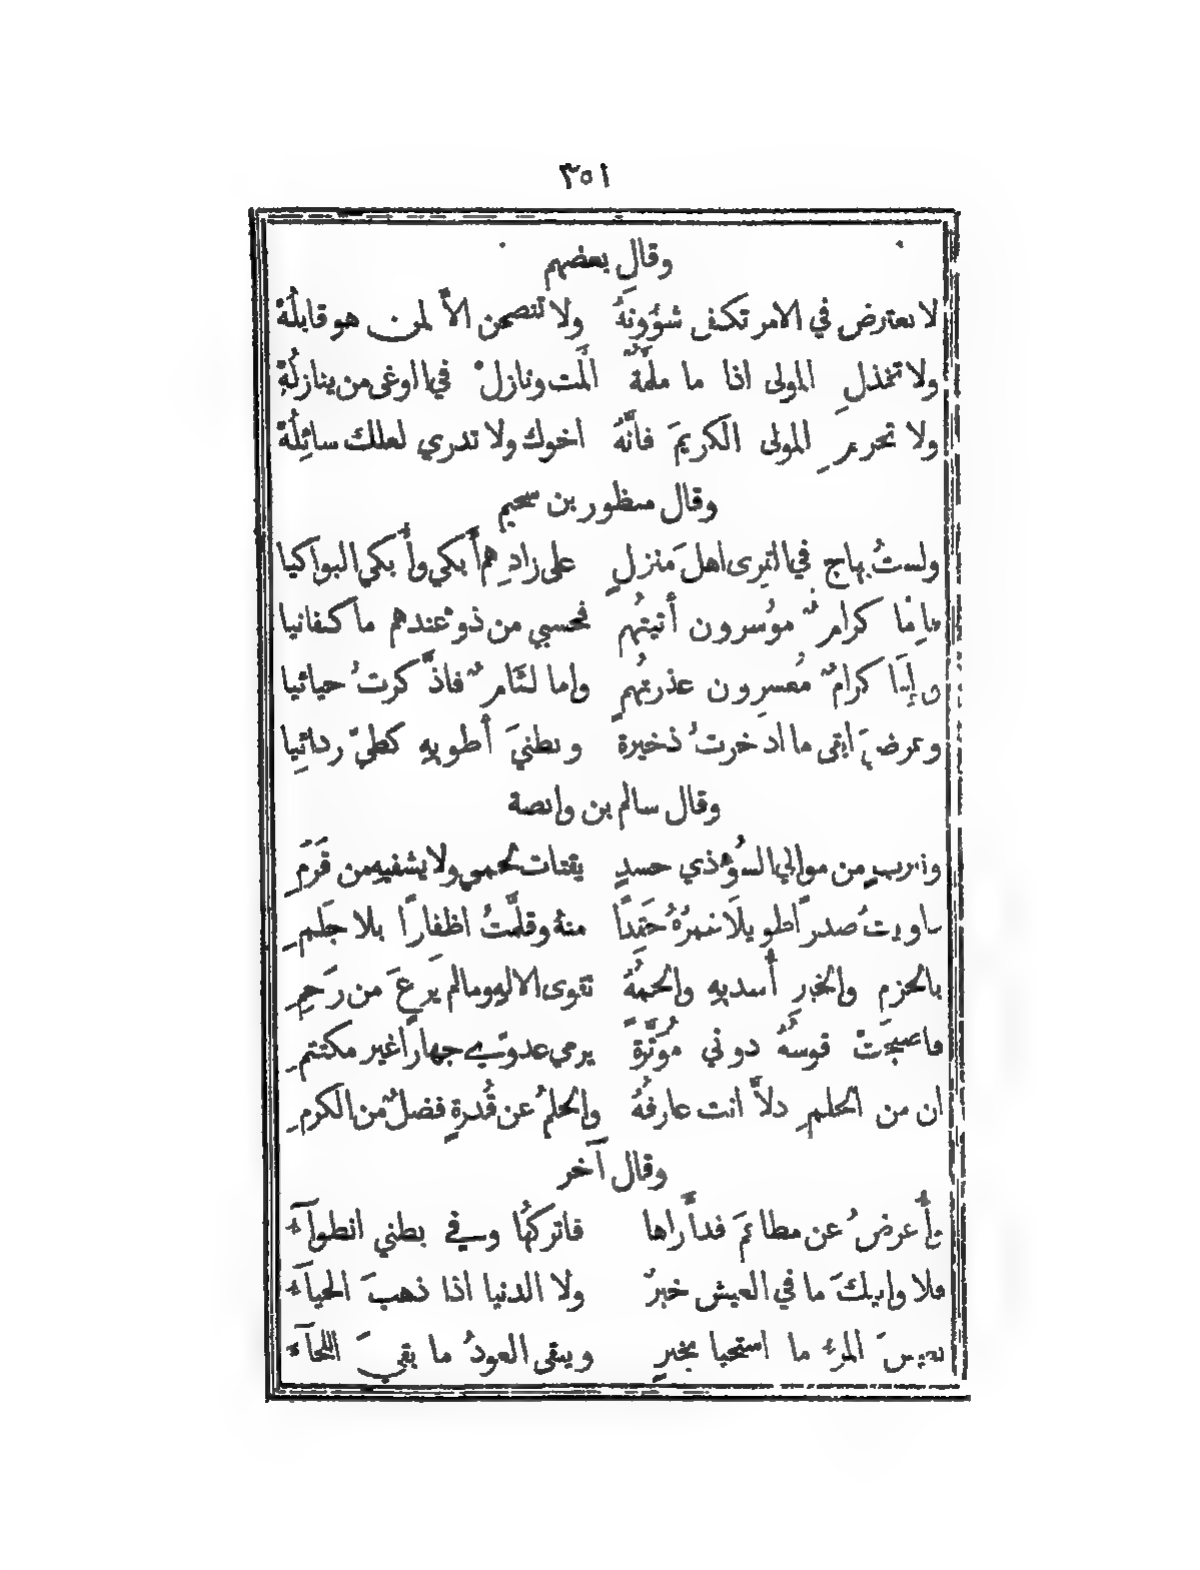 ٣٥١
وقال بعضهم
لا تعترض في الامر تكف شؤونهُ ولا تنصحن الاَّ لمن هو قابلُهْ
ولا تخذلِ المولى اذا ما ملمَّةٌ المَّت ونازلْ في الوغى من ينازلُهْ
ولا تحرمِ المولى الكريمَ فانَّهُ اخوك ولا تدري لعلك سائلُهْ
وقال منظور بن سحيم
ولستُ بهاجٍ في القرى اهلَ منزلٍ على زادِهم أبكي وأُبكي البواكيا
فاِمَّا كرامٌ موُسرون أتيتُهم فحسبي من ذو عندهم ما كفانيا
وإِمَّا كرامٌ مُعسِرون عذرتُهم وإما لئامٌ فاذَّكرتُ حيائيا
وعرضيَ ابقى ما ادخرتُ ذخيرة وبطنيَ أطويهِ كطيّ ردائِيا
وقال سالم بن وابصة
ونيربٍ من موالي السُوء ذي حسدٍ يقتات لحمي ولا يشفيهِ من قَرَمِ
داويتُ صدرًا طويلاً غمرُهُ حَقِدًا منهُ وقلَّمتُ اظفارًا بلا جَلَمِ
بالحزم والخيرِ أُسديهِ والحمُهُ تقوى الالهِ وما لم يَرعَ من رَحِمِ
فاصبحَتْ قوسُهُ دوني مُوَتَّرةً يرمي عدوّي جهارًا غير مكتتمِ
ان من الحلمِ ذلاًّ انت عارفُهُ والحلمُ عن قُدرةٍ فضلٌ من الكرمِ
وقال آخر
وأُعرضُ عن مطاعمَ قد أَراها فاتركُها وفي بطني انطوآءُ
فلا وابيكَ ما في العيش خيرٌ ولا الدنيا اذا ذهبَ الحيآءُ
يعيشَ المرءُ ما استحيا بخيرٍ ويبقى العودُ ما بقيَ اللحآءُ